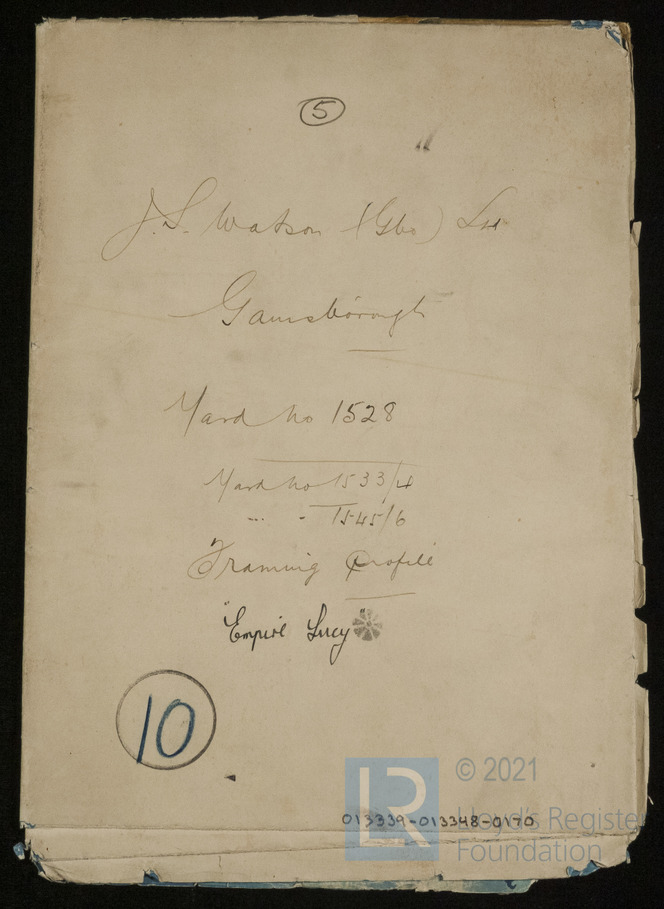 5
J.S. Watson (Gbo) Ltd
Gainsborough
Yard No 1528
Yard No 1533/4
" " 1545/6
Framing Profile
"Empire Lucy"
10
© 2021
LR
Lloyd's Register
Foundation
013339-013348-0170